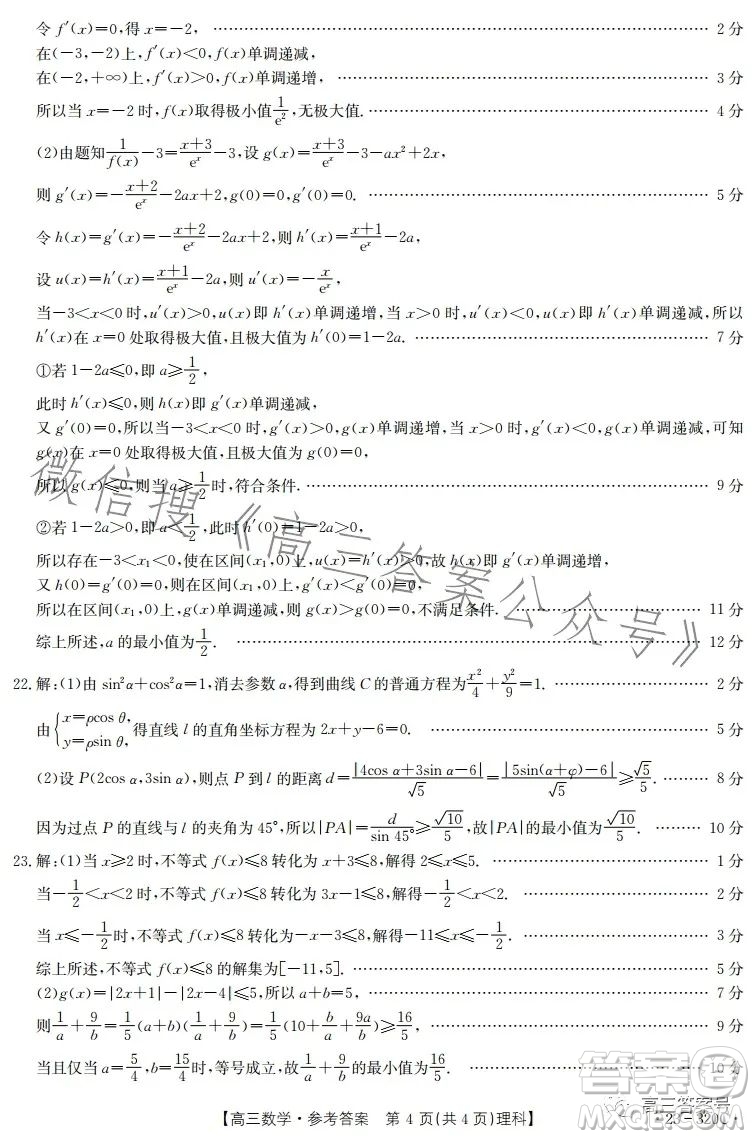 令 f′(x)=0,得 x=-2, …… 2 分
在(-3,-2)上,f′(x)<0,f(x)单调递减,
在(-2,+∞)上,f′(x)>0,f(x)单调递增, …… 3 分
所以当 x=-2 时,f(x)取得极小值1/e²,无极大值. …… 4 分
(2)由题知1/f(x)-3=(x+3)/eˣ-3,设 g(x)=(x+3)/eˣ-3-ax²+2x,
则 g′(x)=-(x+2)/eˣ-2ax+2,g(0)=0,g′(0)=0. …… 5 分
令 h(x)=g′(x)=-(x+2)/eˣ-2ax+2,则 h′(x)=(x+1)/eˣ-2a,
设 u(x)=h′(x)=(x+1)/eˣ-2a,则 u′(x)=-x/eˣ,
当-3<x<0 时,u′(x)>0,u(x)即 h′(x)单调递增,当 x>0 时,u′(x)<0,u(x)即 h′(x)单调递减,所以
h′(x)在 x=0 处取得极大值,且极大值为 h′(0)=1-2a. …… 7 分
①若 1-2a≤0,即 a≥1/2,
此时 h′(x)≤0,则 h(x)即 g′(x)单调递减,
又 g′(0)=0,所以当-3<x<0 时,g′(x)>0,g(x)单调递增,当 x>0 时,g′(x)<0,g(x)单调递减,可知
g(x)在 x=0 处取得极大值,且极大值为 g(0)=0,
所以 g(x)≤0,则当 a≥1/2时,符合条件. …… 9 分
②若 1-2a>0,即 a<1/2,此时 h′(0)=1-2a>0,
所以存在-3<x₁<0,使在区间(x₁,0)上,h′(x)>0,故 h(x)即 g′(x)单调递增,
又 h(0)=g′(0)=0,则在区间(x₁,0)上,g′(x)<g′(0)=0,
所以在区间(x₁,0)上,g(x)单调递减,g(x)>g(0)=0,不满足条件. …… 11 分
综上所述,a 的最小值为1/2. …… 12 分
22.解:(1)由 sin²α+cos²α=1,消去参数 α,得到曲线 C 的普通方程为x²/4+y²/9=1. …… 2 分
由{x=ρcos θ, y=ρsin θ,得直线 l 的直角坐标方程为 2x+y-6=0. …… 5 分
(2)设 P(2cos α,3sin α),则点 P 到 l 的距离 d=|4cos α+3sin α-6|/√5=|5sin(α+φ)-6|/√5≥√5/5. …… 8 分
因为过点 P 的直线与 l 的夹角为 45°,所以|PA|=d/sin 45°≥√10/5,故|PA|的最小值为√10/5. …… 10 分
23.解:(1)当 x≥2 时,不等式 f(x)≤8 转化为 x+3≤8,解得 2≤x≤5. …… 1 分
当-1/2<x<2 时,不等式 f(x)≤8 转化为 3x-1≤8,解得-1/2<x<2. …… 2 分
当 x≤-1/2时,不等式 f(x)≤8 转化为-x-3≤8,解得-11≤x≤-1/2. …… 3 分
综上所述,不等式 f(x)≤8 的解集为[-11,5]. …… 5 分
(2)g(x)=|2x+1|-|2x-4|≤5,所以 a+b=5, …… 7 分
则1/a+9/b=1/5(a+b)(1/a+9/b)=1/5(10+b/a+9a/b)≥16/5, …… 9 分
当且仅当 a=5/4,b=15/4时,等号成立,故1/a+9/b的最小值为16/5. …… 10 分
【高三数学·参考答案 第 4 页(共 4 页)理科】
·23-320C·
微信搜《高三答案公众号》
高三答案号
答案圈
MXQE.COM